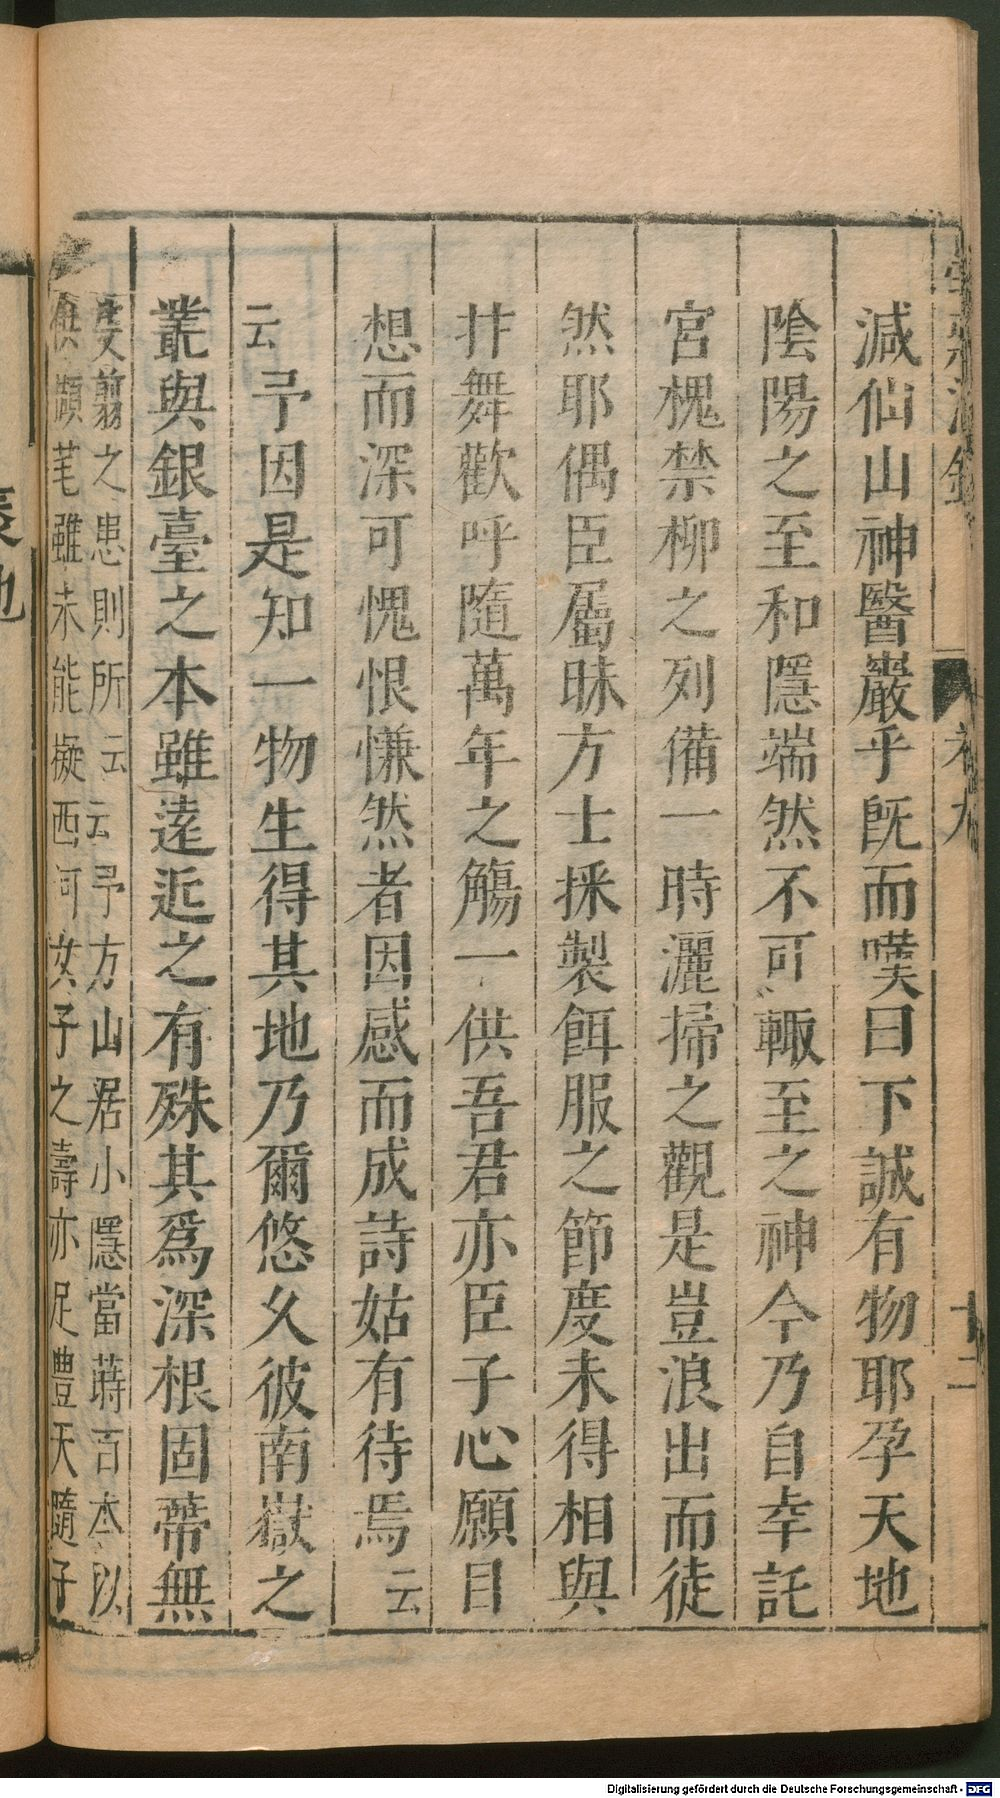 減仙山神醫巖乎旣而嘆曰下誠有物耶孕天地
陰陽之至和隱端然不可輙至之神今乃自幸託
宮槐禁柳之列備一時灑掃之觀是豈浪出而徒
然耶偶臣屬昧方士採製餌服之節度未得相與
抃舞歡呼隨萬年之觴一供吾君亦臣子心願目
想而深可愧恨慊然者因感而成詩姑有待焉云
云予因是知一物生得其地乃爾悠久彼南嶽之
叢與銀臺之本雖遠近之有殊其爲深根固蔕無
芟翦之患則所云云予方山居小隱當蒔百本以
供瀕芼雖未能擬西河女子之壽亦足豊天隨子
卷九
十二
Digitalisierung gefördert durch die Deutsche Forschungsgemeinschaft - DFG